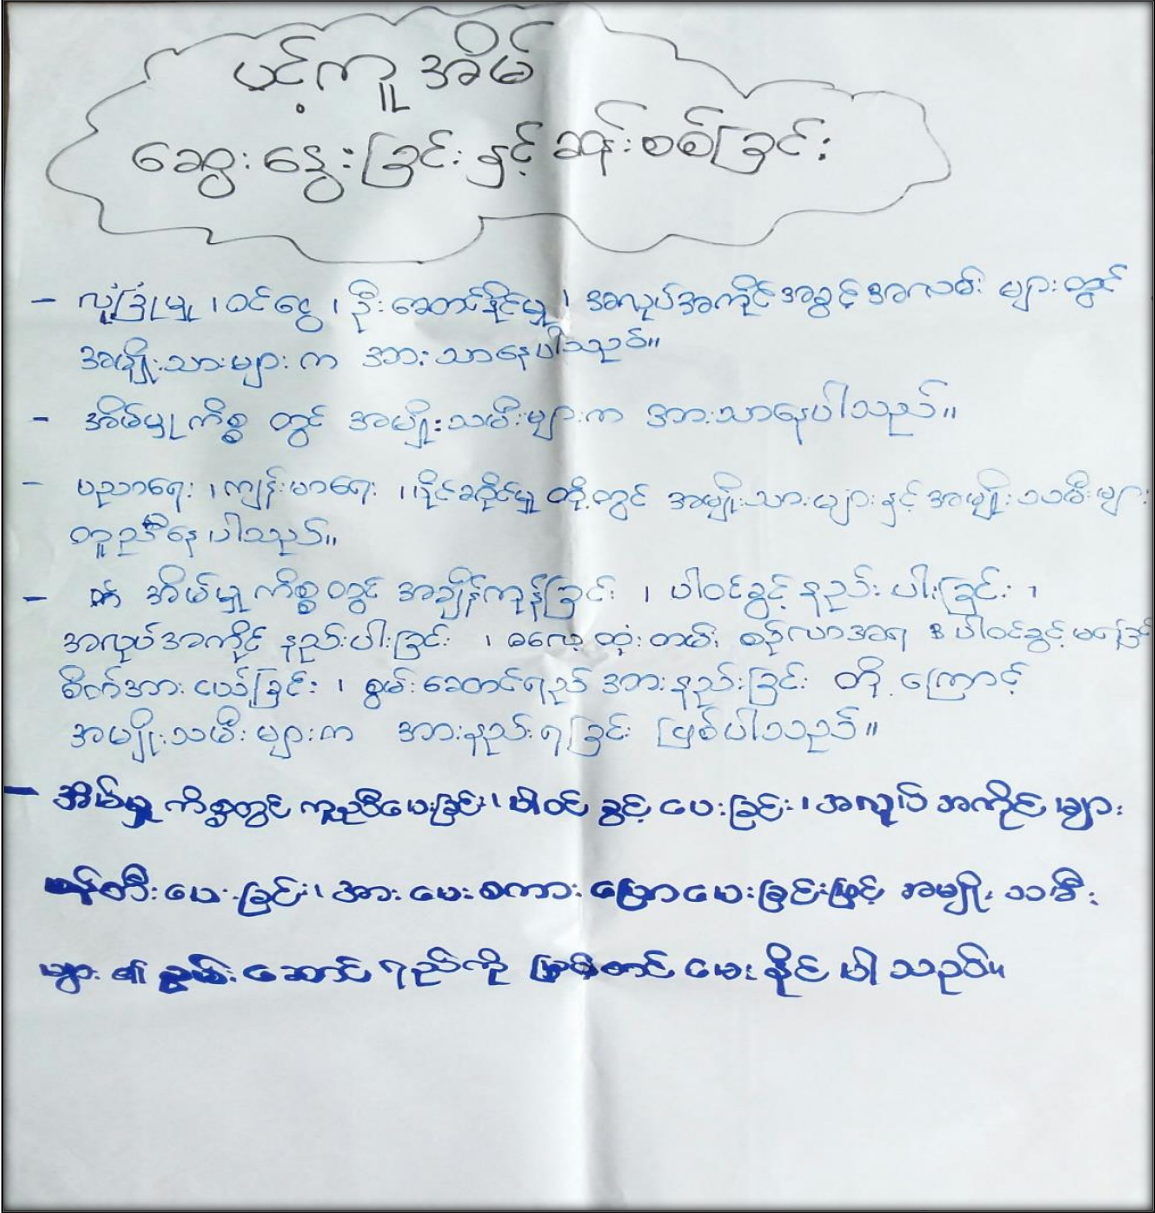 ပင့်ကူအိမ်
ဆွေးနွေးခြင်းနှင့် ဆန်းစစ်ခြင်း
- လုံခြုံမှု ၊ ဝင်ငွေ ၊ ဦးဆောင်နိုင်မှု ၊ အလုပ်အကိုင်အခွင့်အလမ်း များတွင်
အမျိုးသားများ က အားသာနေပါသည်။
- အိမ်မှုကိစ္စ တွင် အမျိုးသမီးများက အားသာနေပါသည်။
- ပညာရေး ၊ ကျန်းမာရေး ၊ ပိုင်ဆိုင်မှု တို့တွင် အမျိုးသားများနှင့် အမျိုးသမီးများ
တူညီနေပါသည်။
- အိမ်မှုကိစ္စတွင် အချိန်ကုန်ခြင်း ၊ ပါဝင်ခွင့်နည်းပါးခြင်း ၊
အလုပ်အကိုင် နည်းပါးခြင်း ၊ ဓလေ့ထုံးတမ်း စဉ်လာအရ ပါဝင်ခွင့်မ
စိတ်အားငယ်ခြင်း ၊ စွမ်းဆောင်ရည် အားနည်းခြင်း တို့ကြောင့်
အမျိုးသမီးများက အားနည်းရခြင်း ဖြစ်ပါသည်။
- အိမ်မှုကိစ္စတွင် ကူညီပေးခြင်း ၊ ပါဝင်ခွင့်ပေးခြင်း ၊ အလုပ်အကိုင်များ
ဖန်တီးပေးခြင်း ၊ အားပေးစကားပြောပေးခြင်းဖြင့် အမျိုးသမီး
များ၏ စွမ်းဆောင်ရည်ကို မြှင့်တင်ပေးနိုင်ပါသည်။